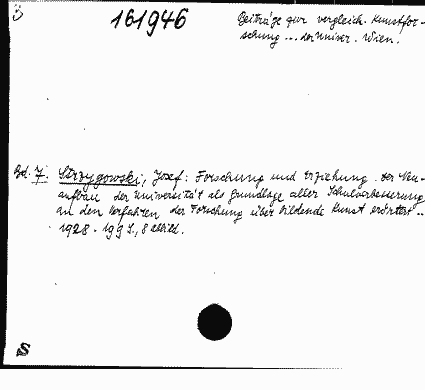 B
161946
Beiträge zur vergleich. Kunstfor-
schung ... der Univer. Wien.
Bd. 7. Strzygowski, Josef: Forschung und Erziehung. Der Neu-
aufbau der Universität als Grundlage aller Schulverbesserung
an den Verfahren der Forschung über bildende Kunst erörtert ...
1928. 199 S., 8 Abbild.
S